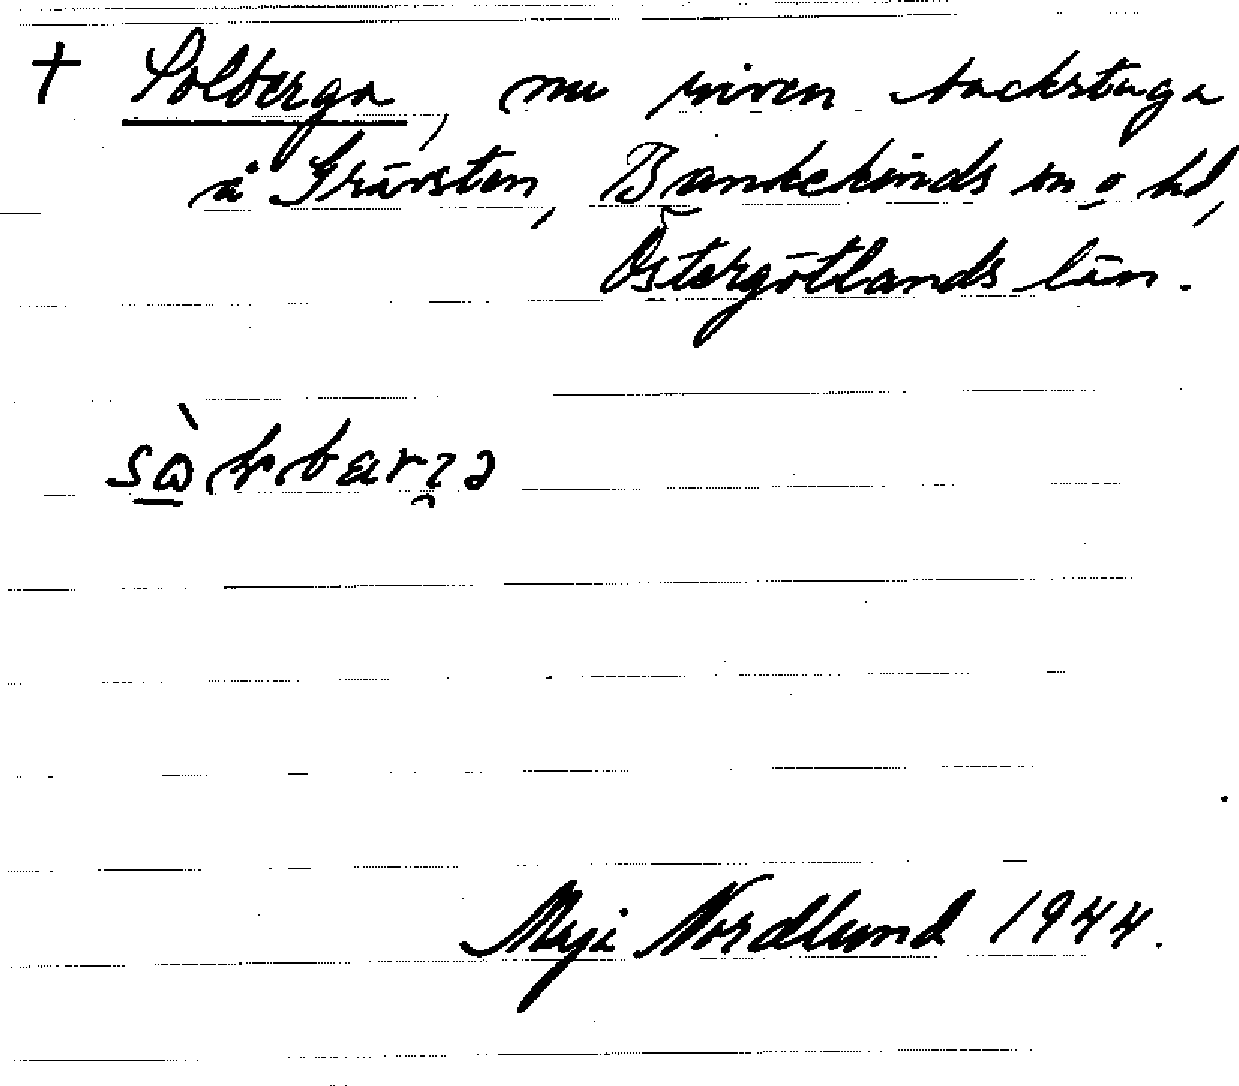 † Solberga, nu riven backstuga
å Grävsten, Bankekinds sn o hd,
Östergötlands län.
Meji Nordlund 1944.